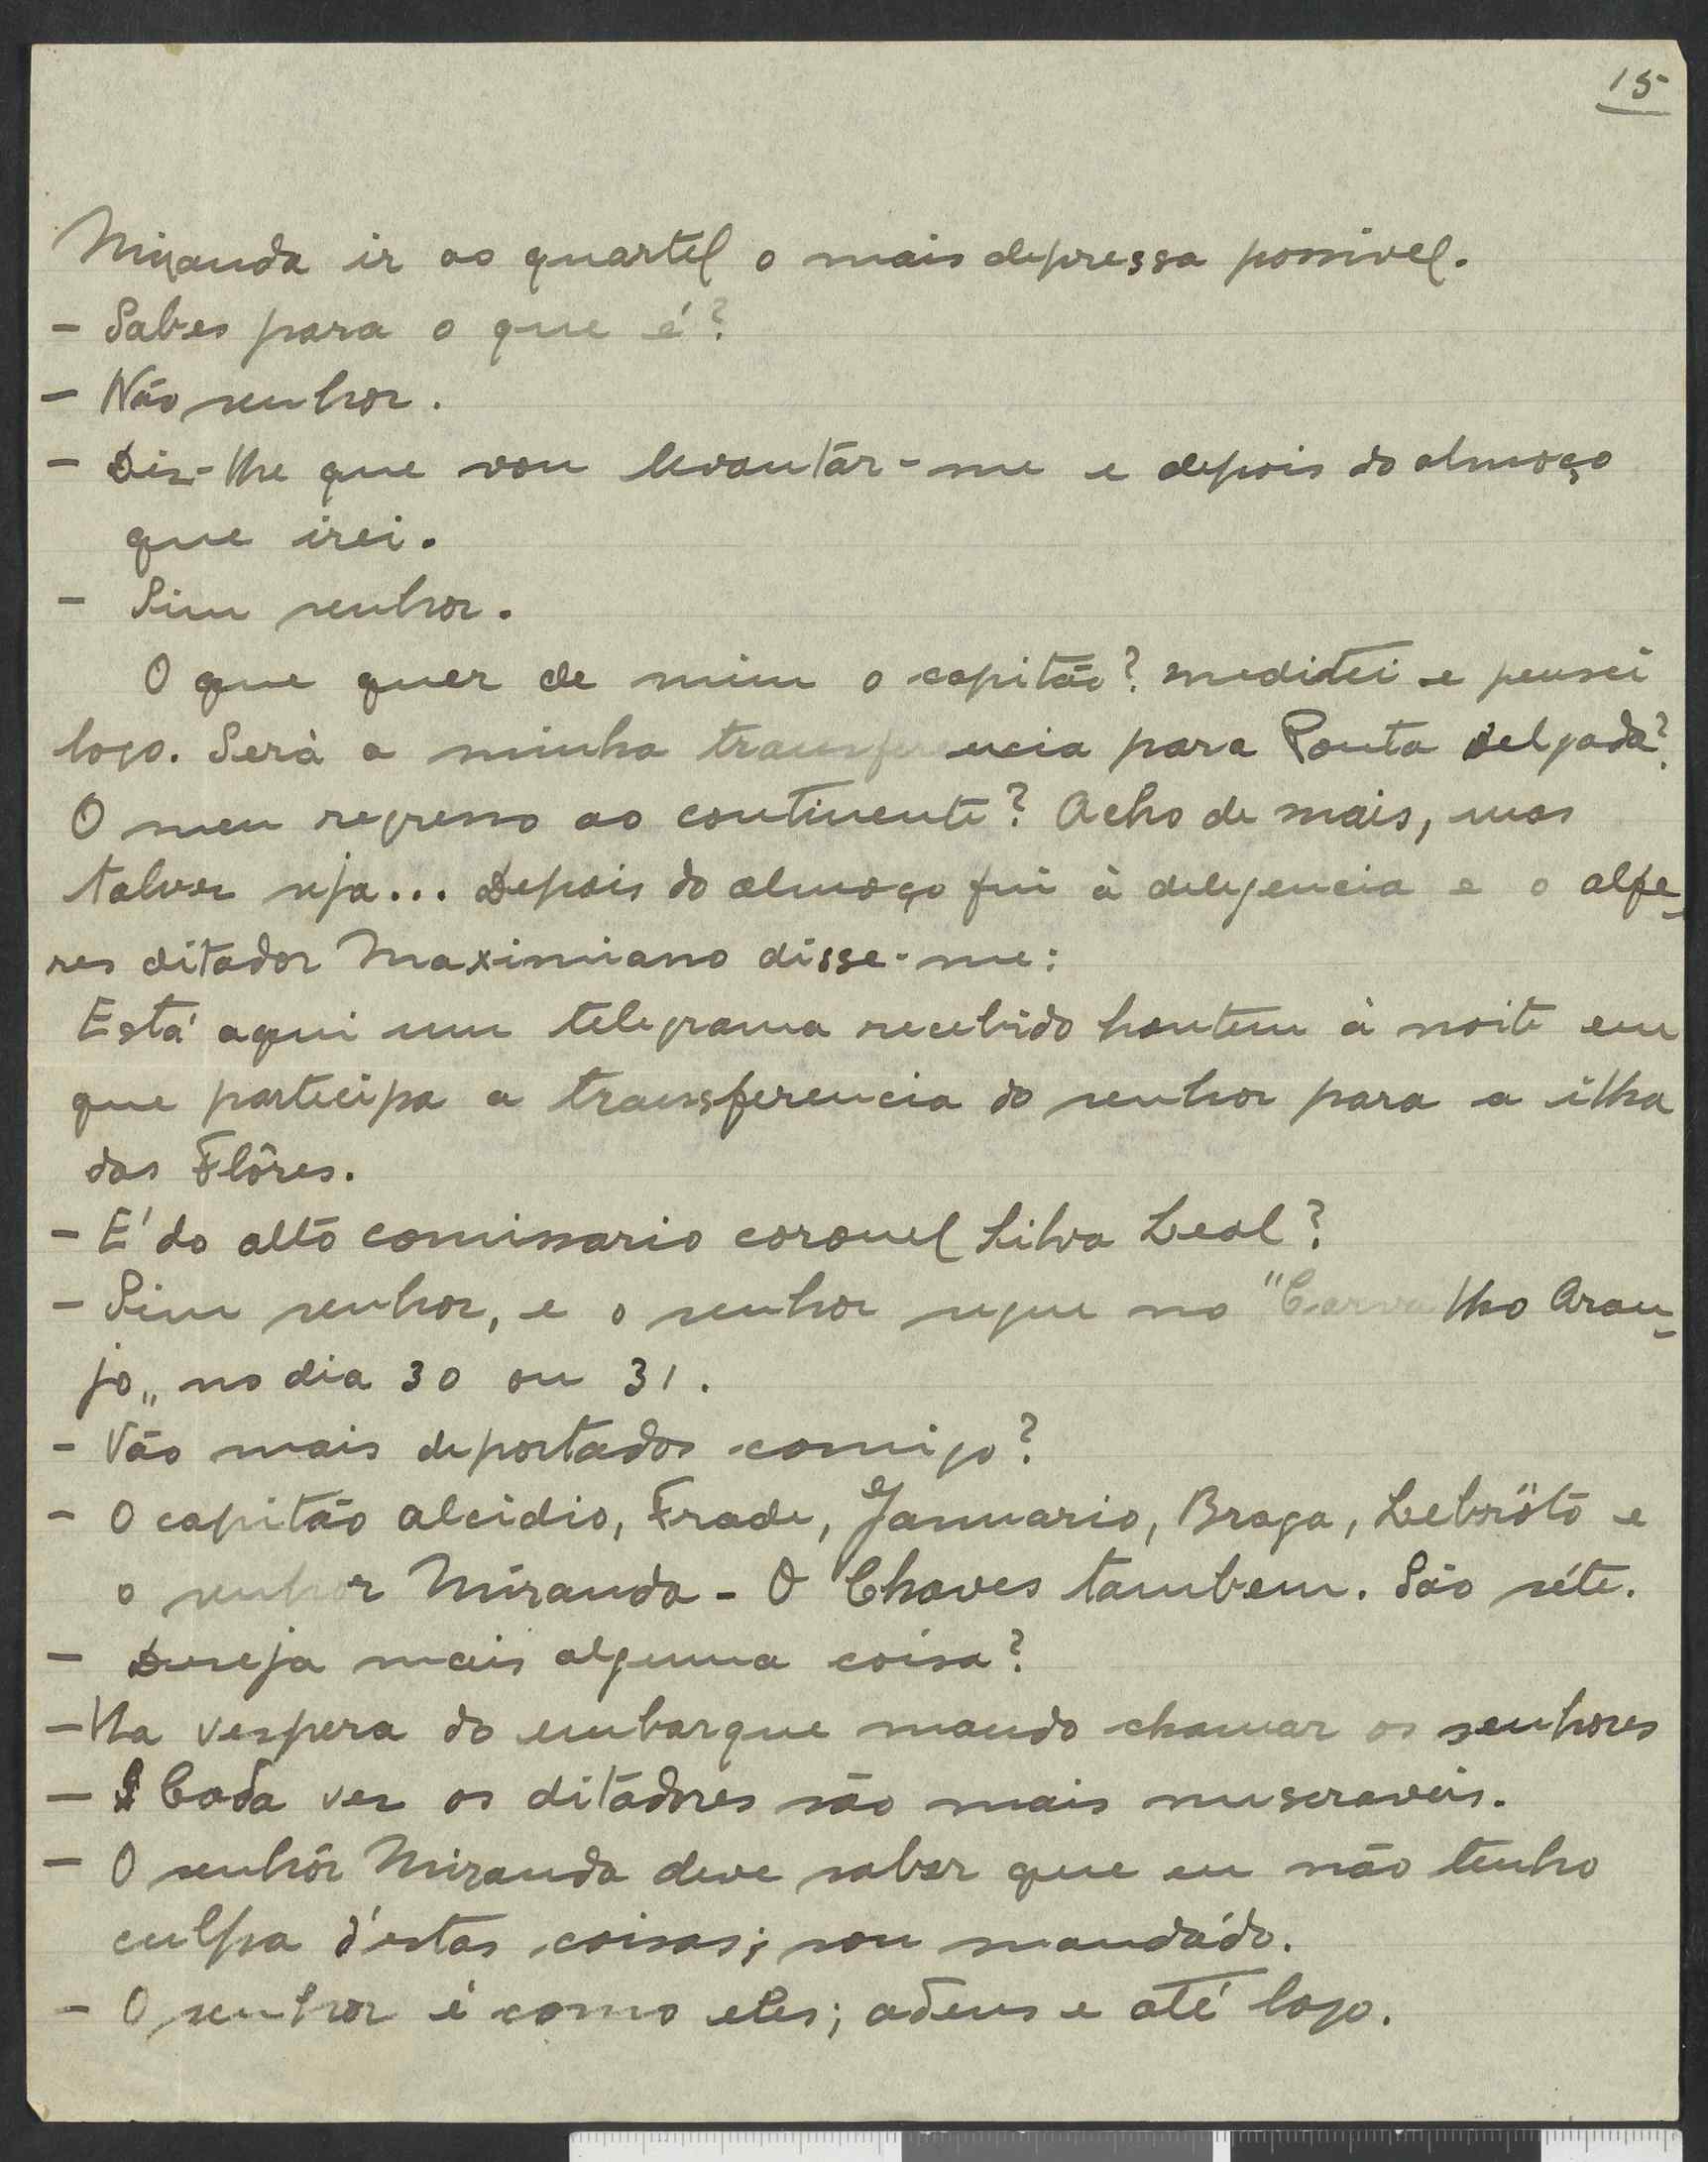 15
Miranda ir ao quartel o mais depressa possivel.
- Sabes para o que é?
- Não senhor.
- Diz-lhe que vou levantár-me e depois do almoço
que irei.
- Sim senhor.
O que quer de mim o capitão? meditei e pensei
logo. Será a minha transferencia para Ponta Delgada?
O meu regresso ao continente? Acho de mais, mas
talvez seja... Depois do almoço fui à deligencia e o alfe-
res ditador Maximiano disse-me:
Está aqui um telegrama recebido hontem à noite em
que participa a transferencia do senhor para a ilha
das Flôres.
- E' do alto comissario coronel Silva Leal?
- Sim senhor, e o senhor segue no "Carvalho Arau-
jo„ no dia 30 ou 31.
- Vão mais deportados comigo?
- O capitão Alcidio, Frade, Januario, Braga, Lebrôto e
o senhor Miranda - O Chaves tambem. São séte.
- Deseja mais alguma coisa?
- Na vespera do embarque mando chamar os senhores
- Cada vez os ditadores são mais miseraveis.
- O senhôr Miranda deve saber que eu não tenho
culpa d'estas coisas; sou mandádo.
- O senhor é como eles; adeus e até logo.